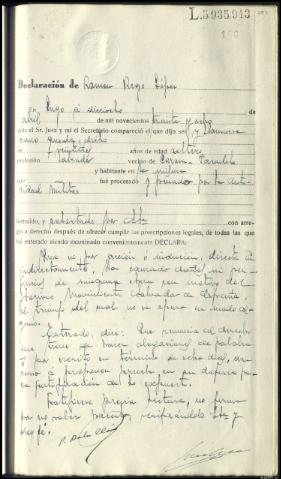 L.5.935.943
Declaración de Ramon Rego López
En Lugo a dieciocho de
abril de mil novecientos treinta y ocho
ante el Sr. Juez y mi el Secretario compareció el que dijo ser y llamarse
como queda dicho
de años de edad soltero
profesión labrador vecino de
y habitante en la misma
que fué procesado y penado por la auto-
ridad militar
instruído, y exhortado por Sª Sª con arre-
glo a derecho después de ofrecer cumplir las prescripciones legales, de todas las que
fué enterado siendo examinado convenientemente DECLARA:
Que ni por acción ó inducion, directa ni
indirectamente, ha causado daños ni per-
juicios de ninguna clase con motivo del
Movimiento Salvador de España,
al triunfo del cual no se opuso en modo al-
guno.
Enterado, dice: Que renuncia al derecho
que tiene de hacer alegaciones de palabra
ó por escrito en término de ocho días, como
a proponer prueba en su defensa pa-
ra participación de lo expuesto.
Ratifícase previa lectura, no firma
por no saber haciendo, verificándolo Sª Sª y
doy fé.